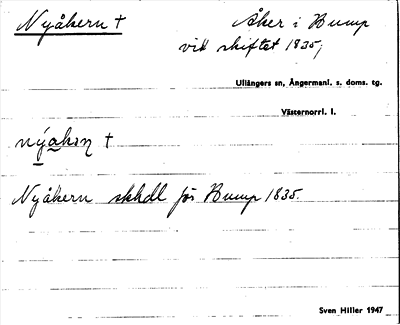 Nyåkern † Åker i Bump
vid skiftet 1835;
Ullångers sn, Ångermanl. s. doms. tg.
Västernorrl. l.
Nyåkern skhdl för Bump 1835.
Sven Hiller 1947